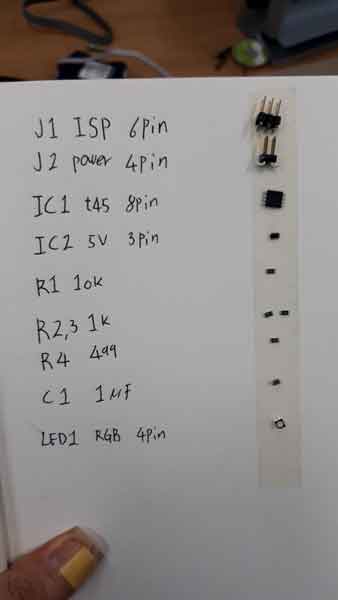 J1 ISP 6pin
J2 power 4pin
IC1 t45 8pin
IC2 5V 3pin
R1 10k
R2,3 1k
R4 499
C1 1uF
LED1 RGB 4pin